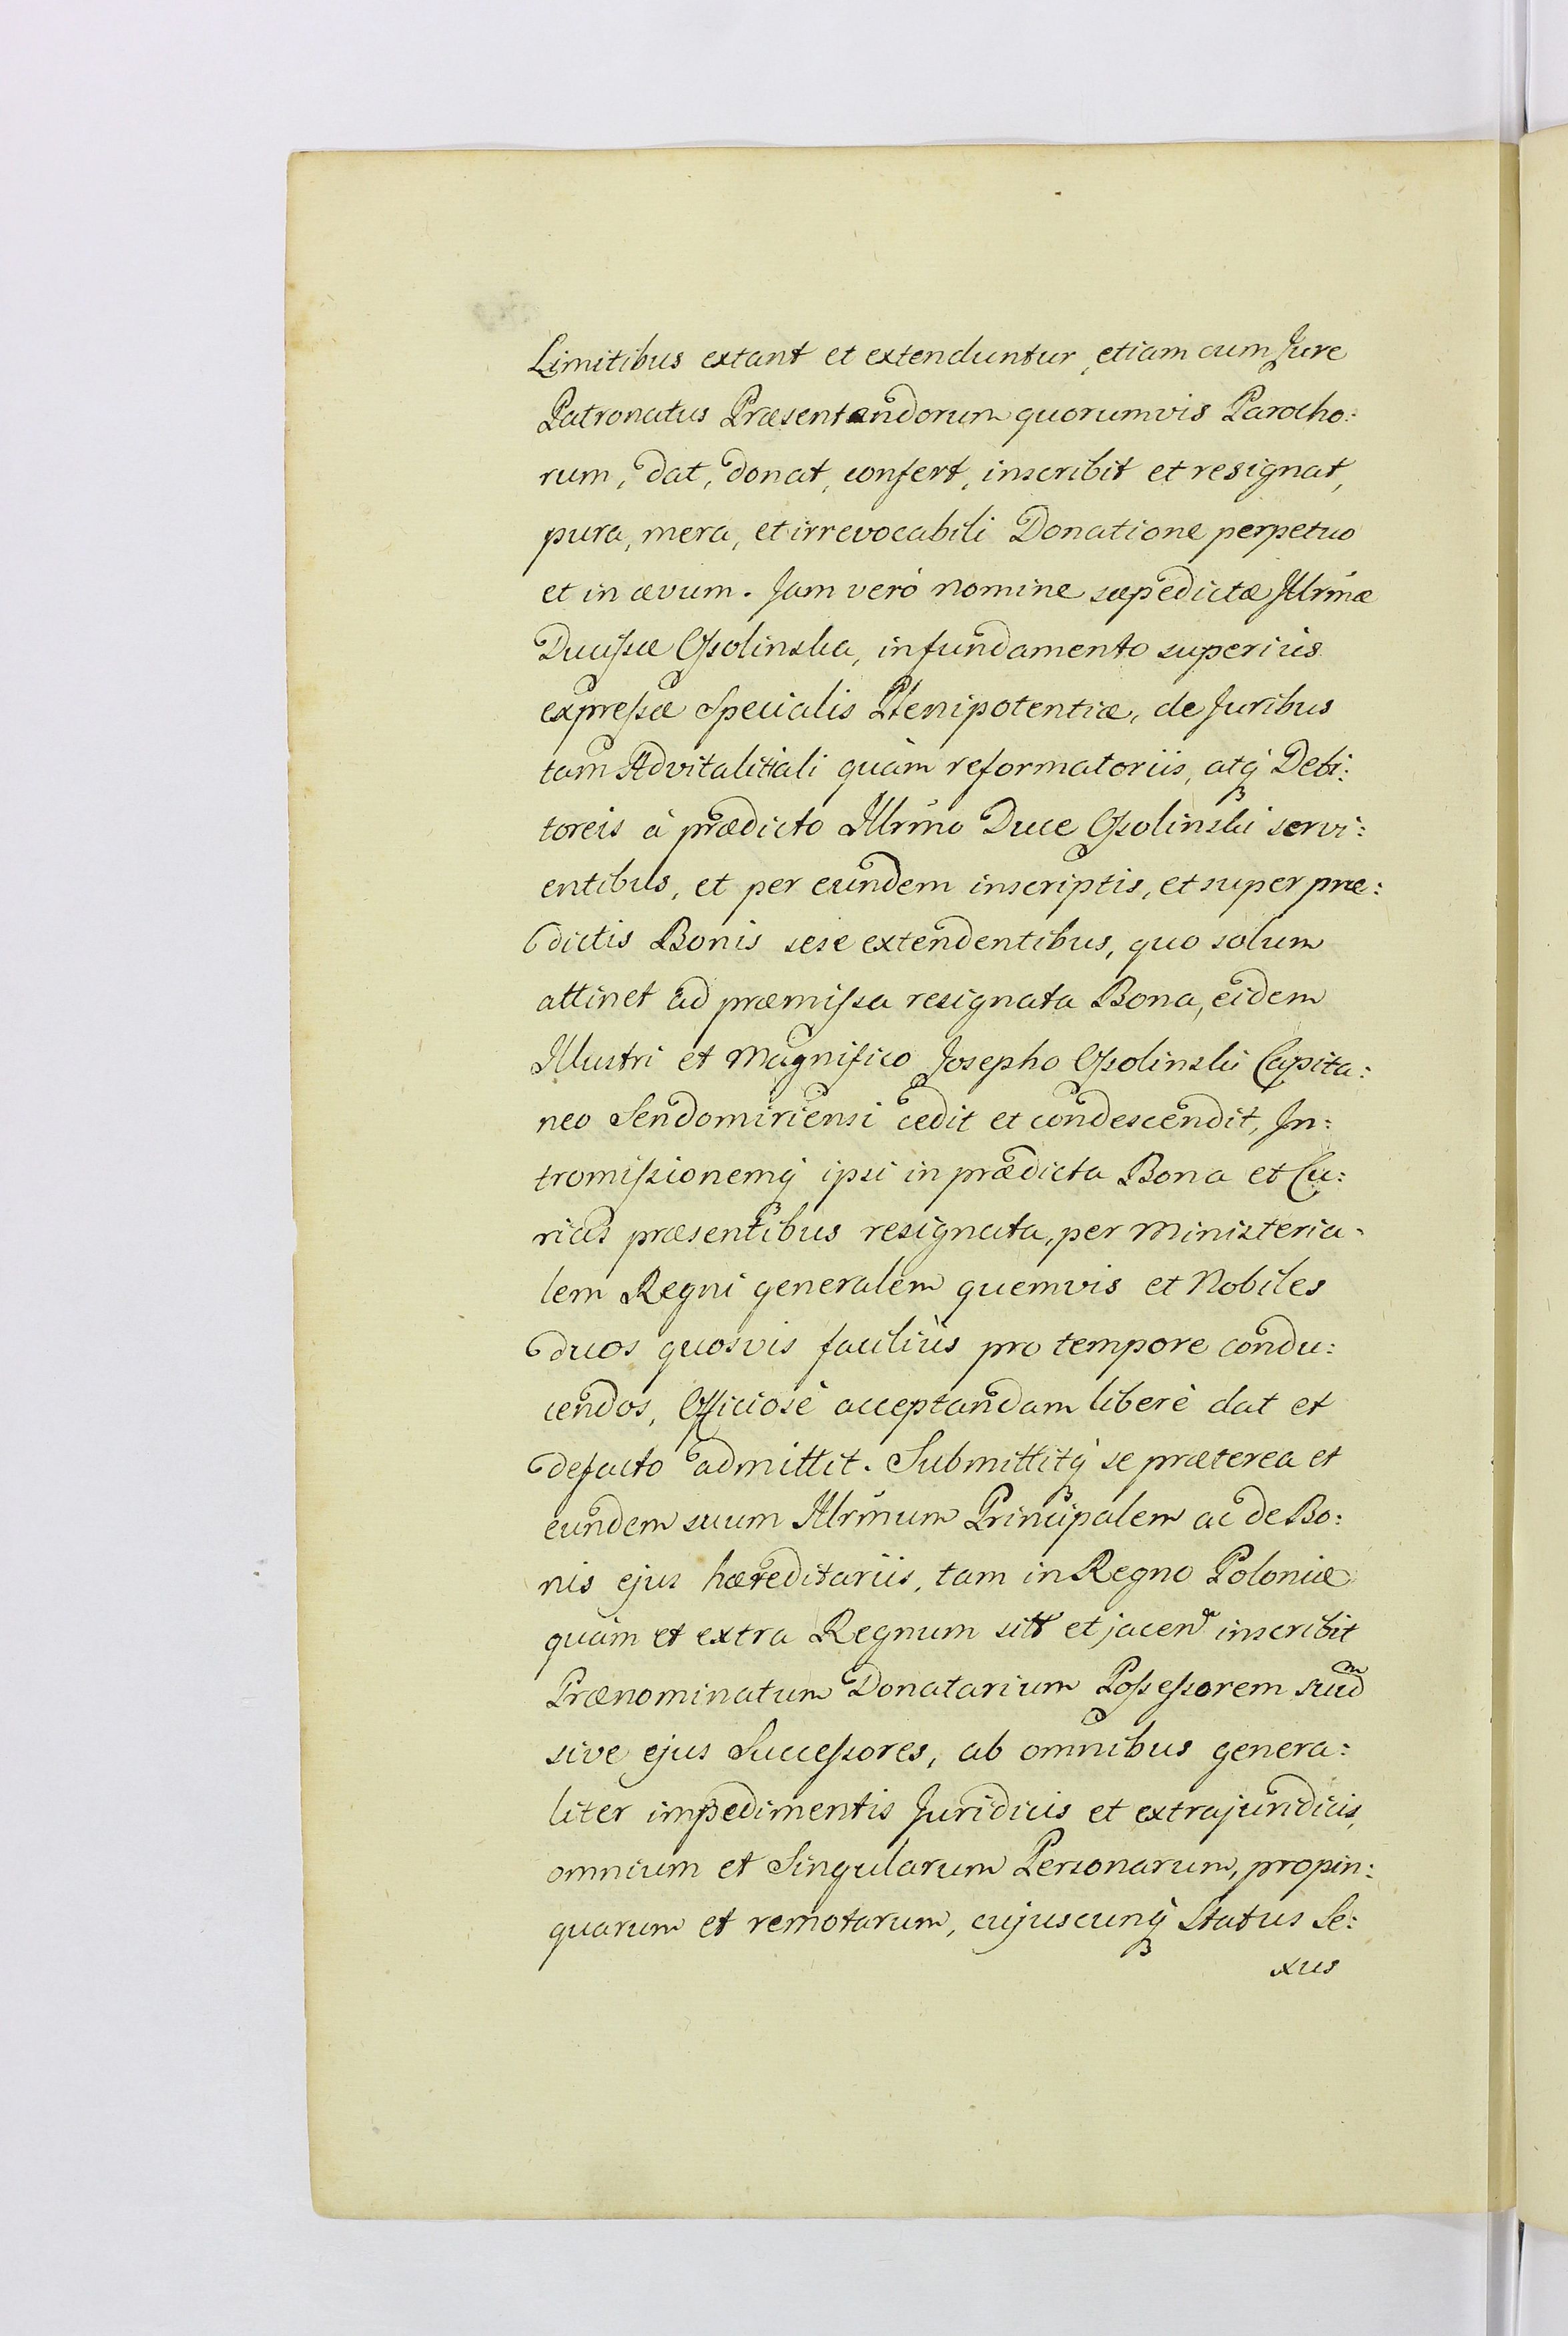 Limitibus extant et extenduntur, etiam cum Jure
Patronatus Præsentandorum quorumvis Parocho:
rum, dat, donat, confert, inscribit et resignat,
pura, mera, et irrevocabili Donatione perpetuo
et in ævum. Jam verò nomine sæpedictæ Illrmæ
Ducissæ Ossolinska, in fundamento superiùs
expressæ Specialis Plenipotentiæ, de Juribus
tam Advitalitiali quàm reformatoriis, atq́ Debi:
toreis à prædicto Illrmo Duce Ossolinski servi:
entibus, et per eundem inscriptis, et super præ:
dictis Bonis sese extendentibus, quo solum
attinet ad præmissa resignata Bona, eidem
Illustri et Magnifico Josepho Ossolinski Capita:
neo Sendomiriensi cedit et condescendit, In:
tromissionemq́ ipsi in prædicta Bona et Cu:
rias præsentibus resignata, per Ministeria:
lem Regni generalem quemvis et Nobiles
duos quosvis faciliùs pro tempore condu:
cendos, Officiosè acceptandam liberè dat et
defacto admittit. Submittitq́ se præterea et
eundem suum Illrmum Principalem ac de Bo:
nis ejus hæreditariis, tam in Regno Poloniæ
quàm et extra Regnum sitt et jacen inscribit
Prænominatum Donatarium Possessorem suum
sive ejus Successores, ab omnibus genera:
liter impedimentis Juridicis et extrajuridicis,
omnium et Singularum Personarum, propin:
quarum et remotarum, cujuscunq́ Status Se:
xus